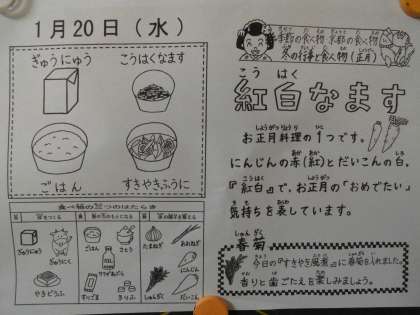 1月20日(水)
ぎゅうにゅう
こうはくなます
ごはん
すきやきふうに
食べ物の三つのはたらき
ぎゅうにゅう
やきどうふ
ごはん
さとう
サラダあぶら
すりごま
きりふ
たまねぎ
しゅんぎく
ねぎ
にんじん
だいこん
季節の食べ物 京都の食べ物
冬の行事と食べ物(正月)
こうはく
紅白なます
お正月料理の1つです。
にんじんの赤(紅)とだいこんの白。
『紅白』で、お正月の「おめでたい」
気持ちを表しています。
しゅんぎく
春菊
今日の『すきやき風煮』に春菊を入れました。
香りと歯ごたえを楽しみましょう。